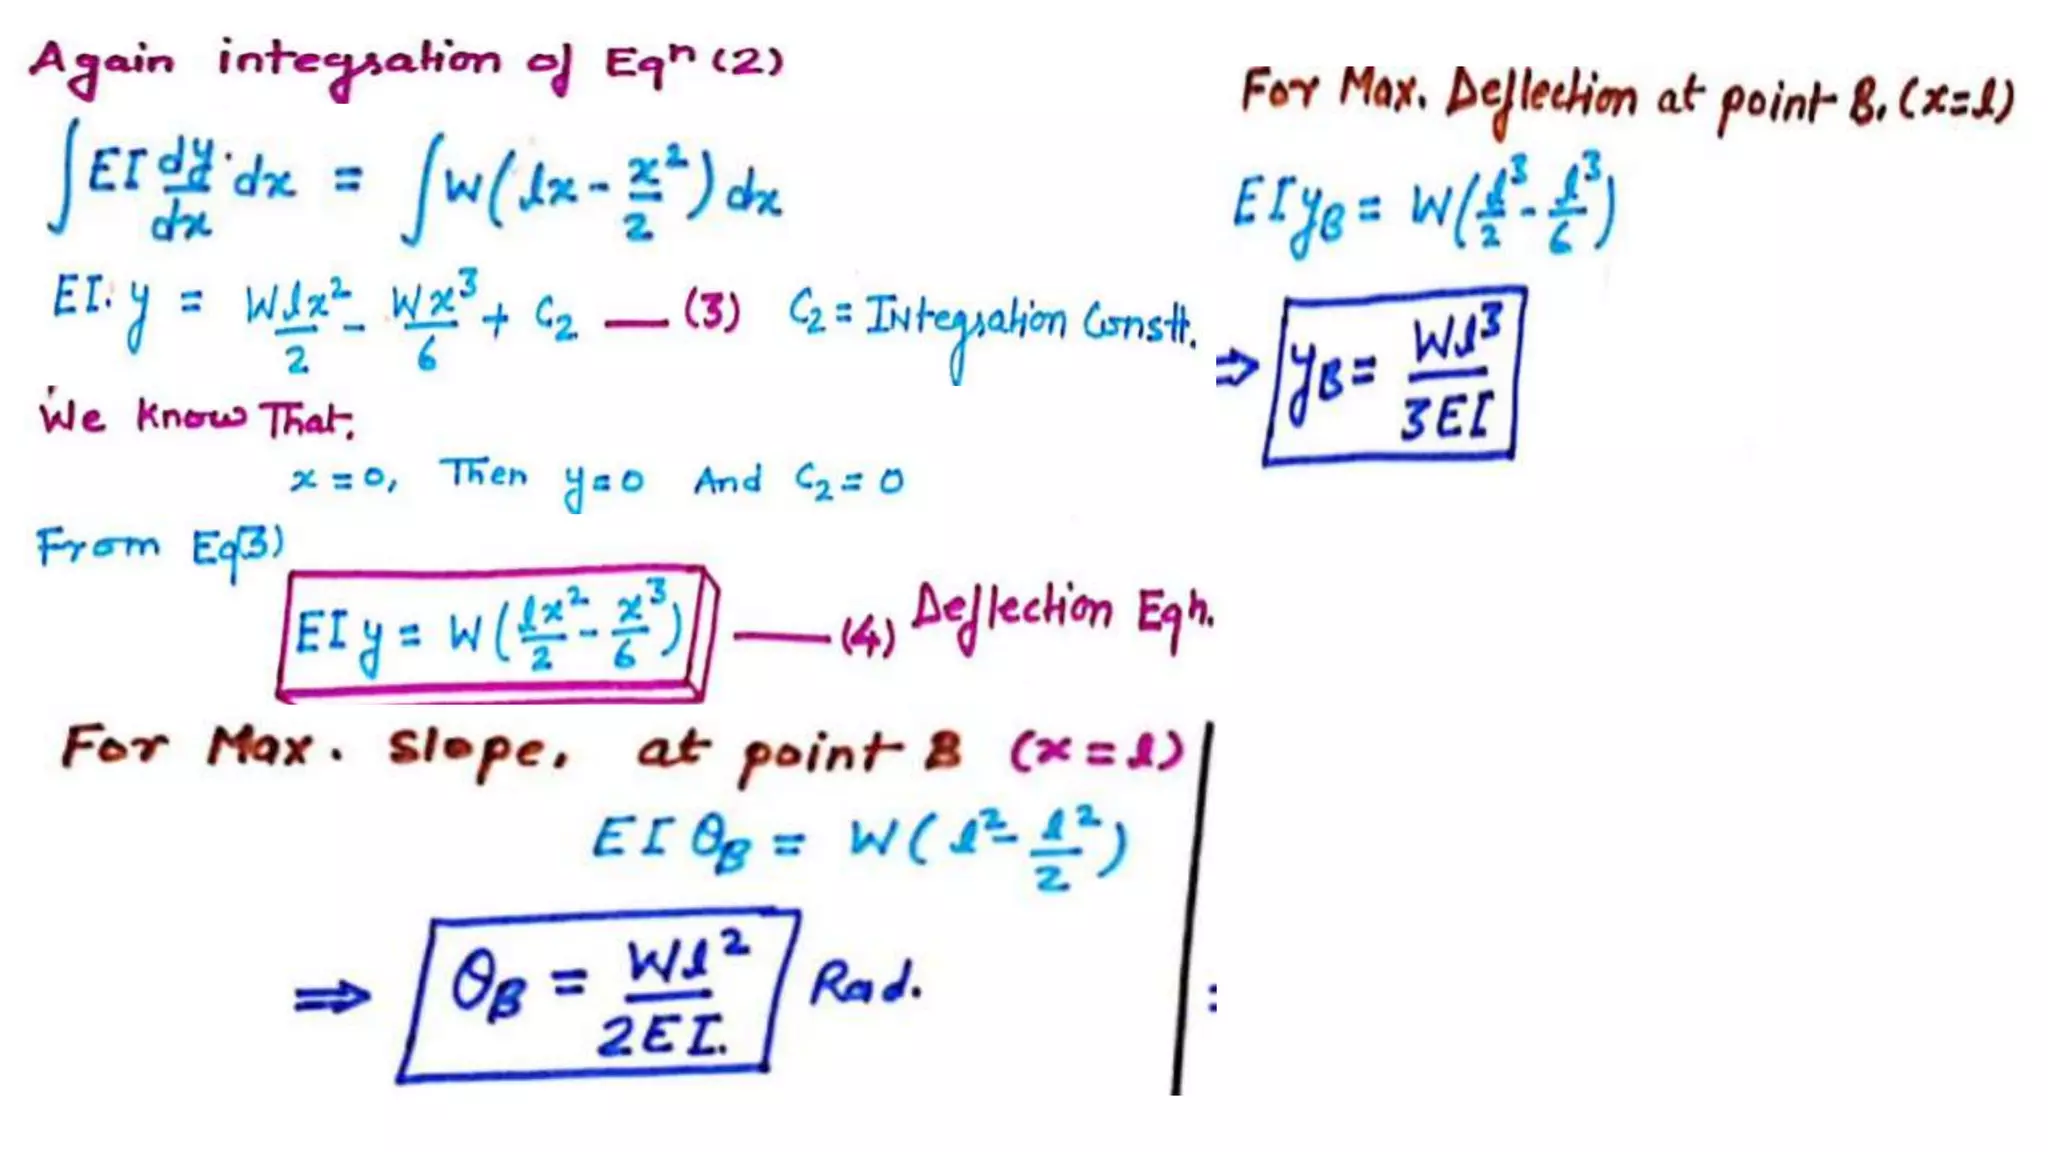 Again integration of Eqⁿ (2)
∫EI dy/dx · dx = ∫W(lx - x²/2) dx
EI. y = Wlx²/2 - Wx³/6 + C₂ — (3) C₂ = Integration Constt.
We Know That.
x = 0, Then y = 0 And C₂ = 0
From Eq(3)
EI y = W(lx²/2 - x³/6) — (4) Deflection Eqn.
For Max. slope, at point B (x = l)
EI θ_B = W(l² - l²/2)
⇒ θ_B = Wl²/2EI. Rad.
For Max. Deflection at point B. (x=l)
EI y_B = W(l³/2 - l³/6)
⇒ y_B = Wl³/3EI